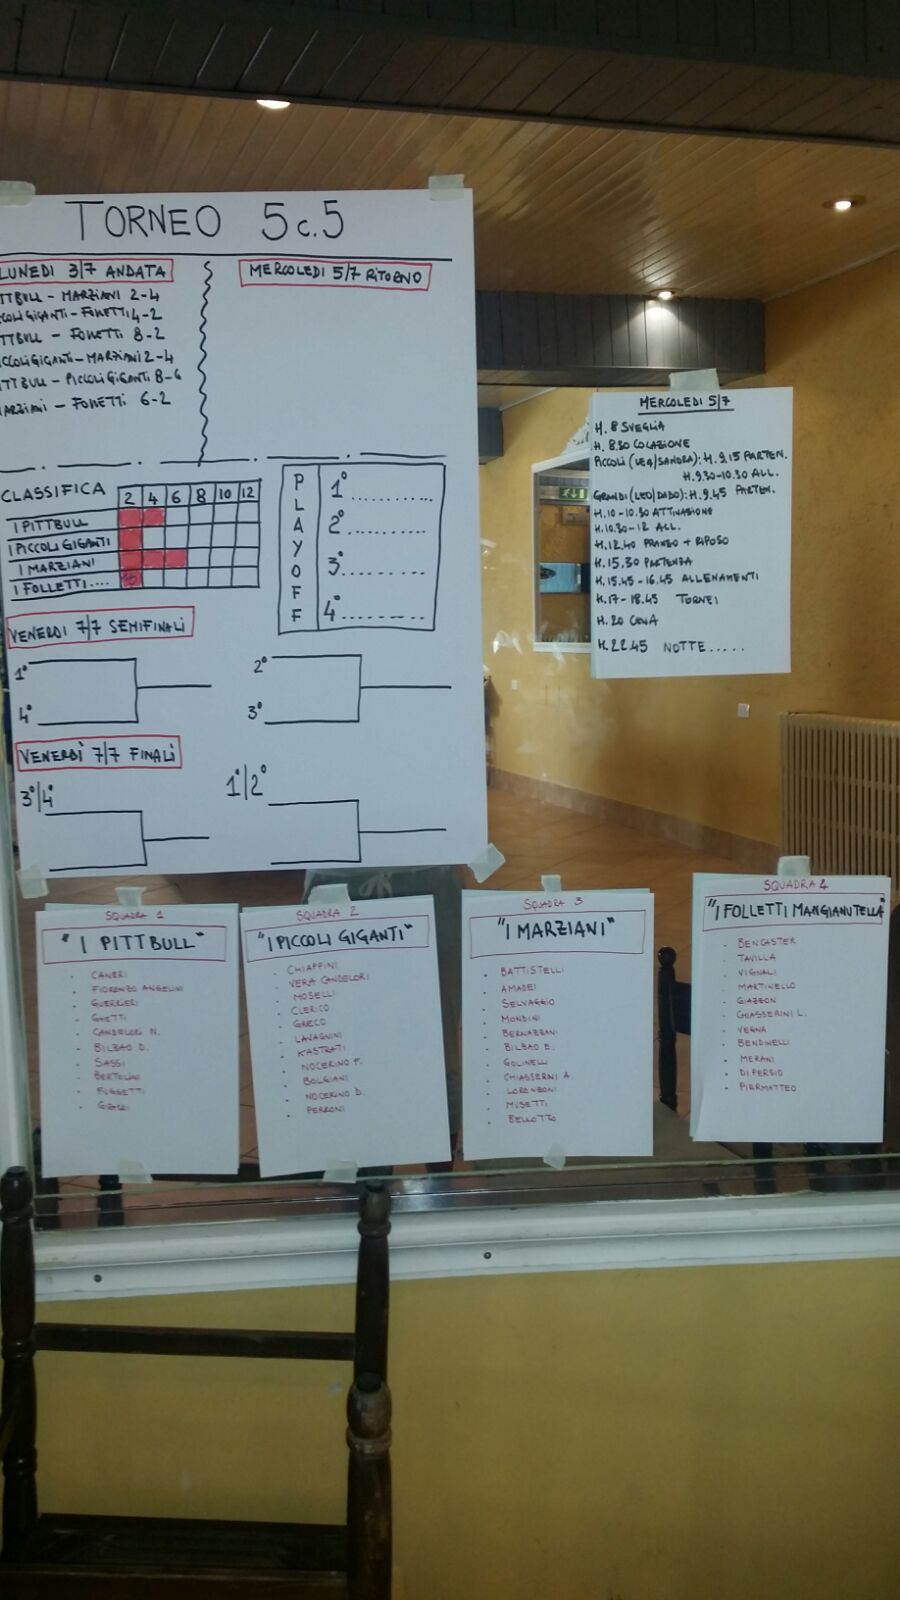 TORNEO 5c.5
LUNEDI 3/7 ANDATA
TTBULL - MARZIANI 2-4
COLI GIGANTI - FOLLETTI 4-2
TTBULL - FOLLETTI 8-2
ICCOLI GIGANTI - MARZIANI 2-4
TTBULL - PICCOLI GIGANTI 8-6
ARZIANI - FOLLETTI 6-2
MERCOLEDI 5/7 RITORNO
CLASSIFICA 2 4 6 8 10 12
I PITTBULL
I PICCOLI GIGANTI
I MARZIANI
I FOLLETTI....
PLAYOFF
1°............
2°..........
3°..........
4°.........
VENERDI 7/7 SEMIFINALI
1°
4°
2°
3°
VENERDÌ 7/7 FINALI
3°/4°
1°/2°
MERCOLEDI 5/7
H. 8 SVEGLIA
H. 8.30 COLAZIONE
PICCOLI (LEO/SANDRA): H. 9.15 PARTEN.
H. 9.30-10.30 ALL.
GRANDI (LEO/DADO): H. 9.45 PARTEN.
H. 10-10.30 ATTIVAZIONE
H. 10.30-12 ALL.
H. 12.40 PRANZO + RIPOSO
H. 15.30 PARTENZA
H. 15.45-16.45 ALLENAMENTI
H. 17-18.45 TORNEI
H. 20 CENA
H. 22.45 NOTTE.....
SQUADRA 1
"I PITTBULL"
CANERI
FIORENZO ANGELINI
GUERRIERI
GHETTI
CANDELORI N.
BILBAO D.
SASSI
BERTOLINI
FUGGETTI
SQUADRA 2
"I PICCOLI GIGANTI"
CHIAPPINI
VERA CANDELORI
MOSELLI
CLERICO
GRECO
LAVAGNINI
KASTRATI
NOCERINO F.
BOLGIANI
NOCERINO D.
PERRONI
SQUADRA 3
"I MARZIANI"
BATTISTELLI
AMADEI
SELVAGGIO
MONDINI
BERNAZZANI
BILBAO E.
GOLINELLI
CHIASSERINI A.
LORENZONI
MUSETTI
BELLOTTO
SQUADRA 4
"I FOLLETTI MANGIANUTELLA"
BENCASTER
TAVILLA
VIGNALI
MARTINELLO
GIAZZON
CHIASSERINI L.
VEGNA
BENDINELLI
MERANI
DI PERSIO
PIERMATTEO